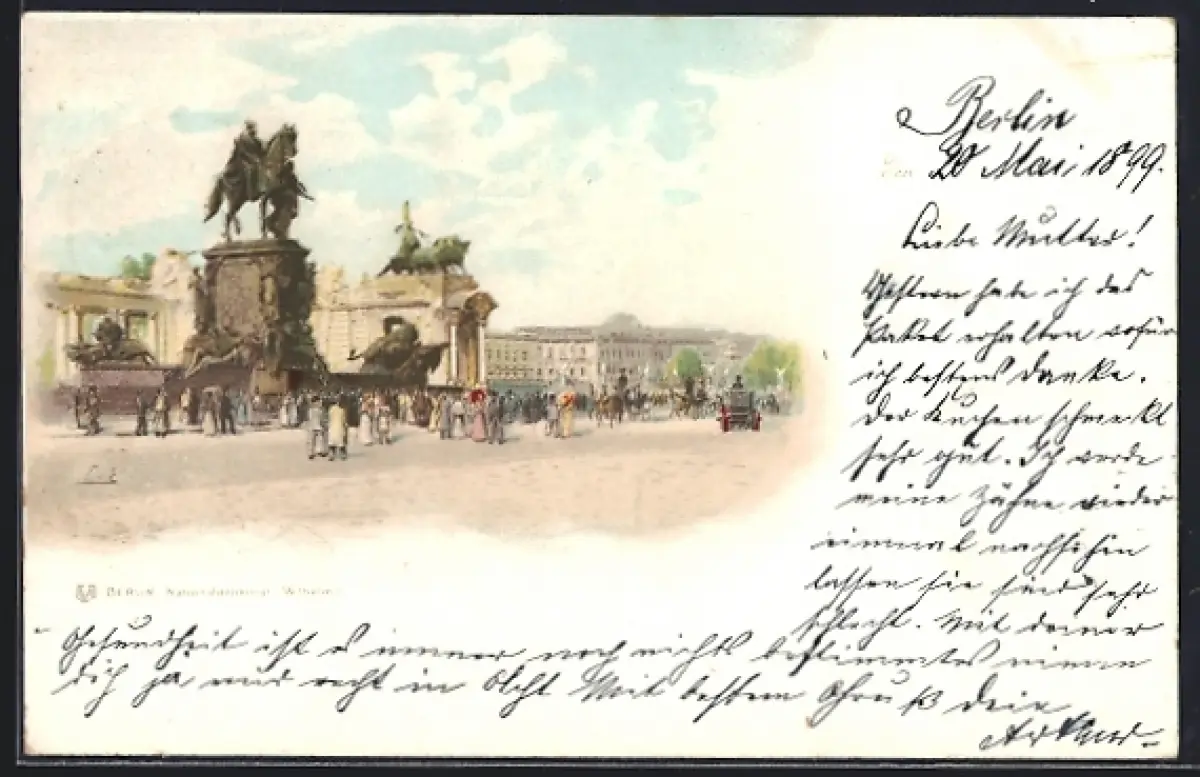 Berlin
Den 20 Mai 1899.
Liebe Mutter!
Gestern habe ich das
Paket erhalten wofür
ich bestens danke.
Der Kuchen schmeckt
sehr gut. Ich werde
meine Zähne wieder
einmal nachsehen
lassen sie sind sehr
schlecht. Mit deiner
Gesundheit ist es immer noch nichts bestimmtes nimm
dich ja nur recht in Acht Mit bestem Gruß dein
BERLIN. Nationaldenkmal Wilhelm I